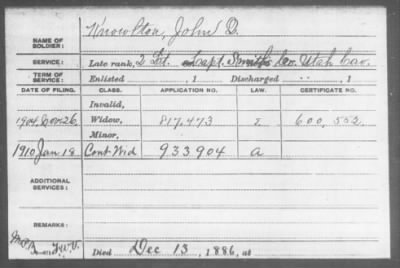 Knowlton, John D.
NAME OF SOLDIER:
SERVICE: Late rank, 2 Lt. Capt. Smith's Co. Utah Cav.
TERM OF SERVICE: Enlisted , 1 Discharged , 1
DATE OF FILING. CLASS. APPLICATION NO. LAW. CERTIFICATE NO.
Invalid,
1904, Widow, 817,473 600,552
Minor,
1910 Jan 18 Cont Wid 933904 a
ADDITIONAL SERVICES:
REMARKS:
Died Dec 13, 1886, at